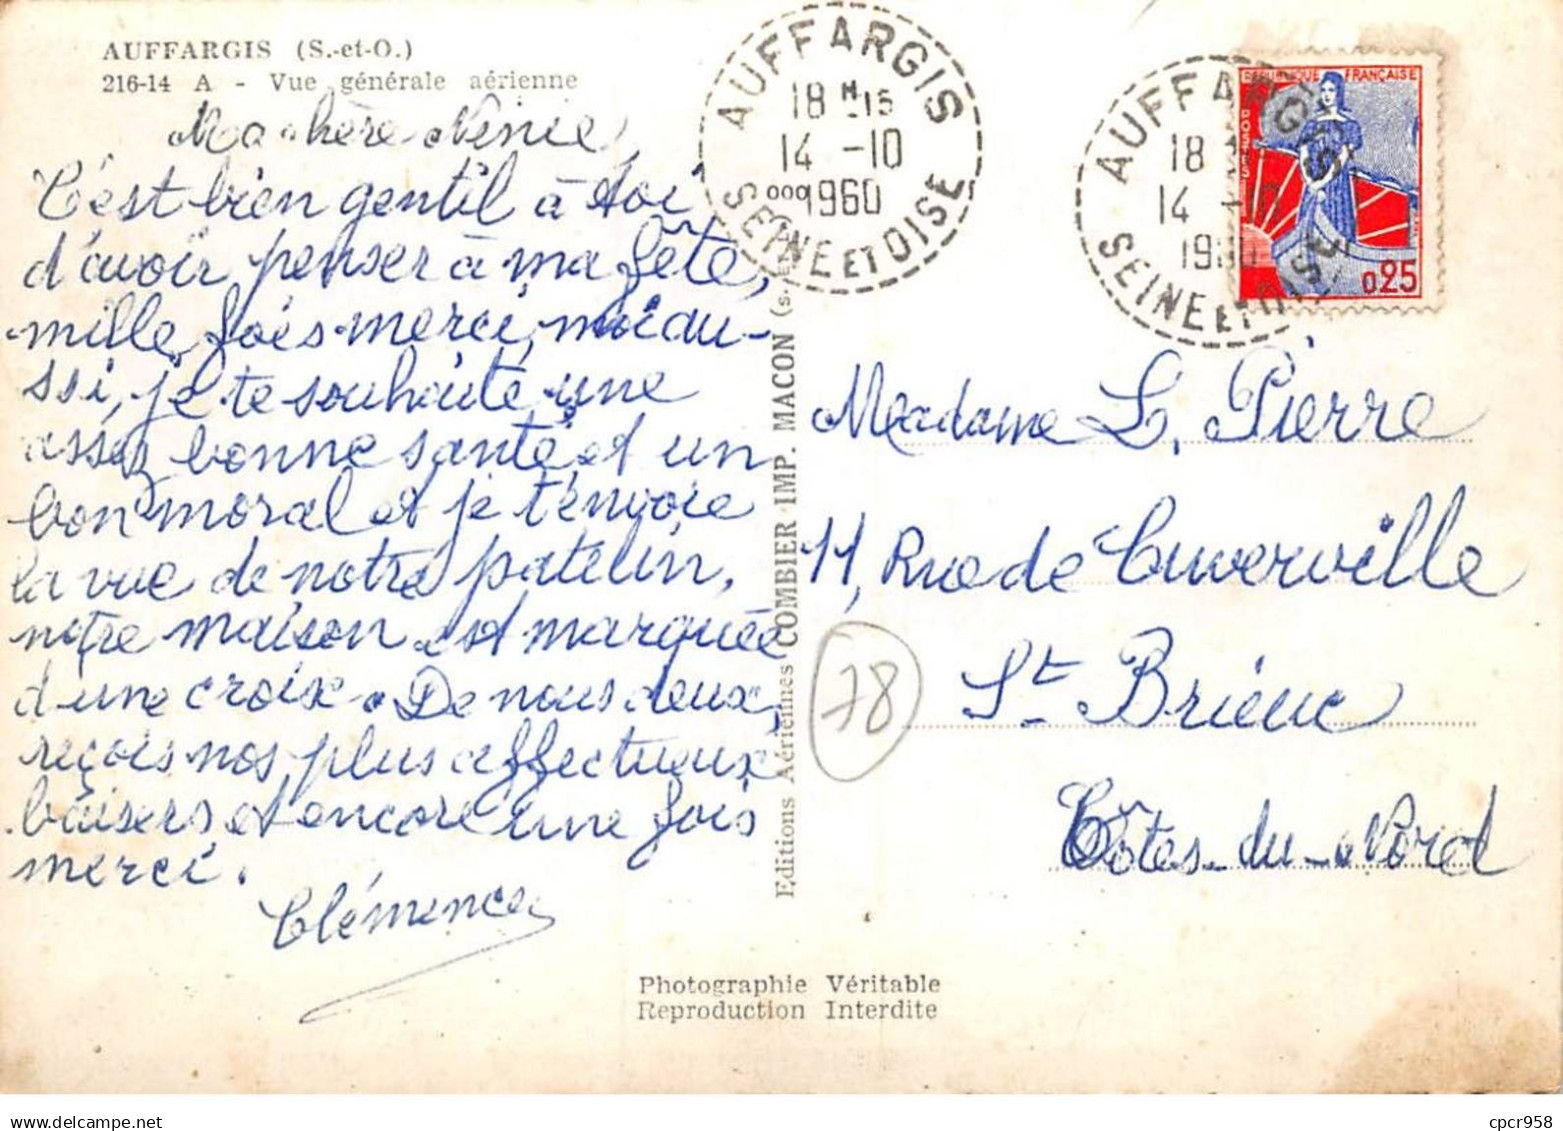 AUFFARGIS (S.-et-O.)
216-14 A - Vue générale aérienne
Ma chère Nénie,
C'est bien gentil à toi
d'avoir penser à ma fête,
mille fois merci, moi au-
ssi, je te souhaite une
assez bonne santé et un
bon moral et je t'envoie
la vue de notre patelin,
notre maison est marquée
d'une croix. De nous deux,
reçois nos plus affectueux
baisers et encore une fois
merci.
Clémence
Editions Aériennes COMBIER IMP. MACON (S.-
AUFFARGIS
18 H 15
14 -10
1960
SEINE ET OISE
AUFFARGIS
18
14 -10
19
SEINE ET OISE
REPUBLIQUE FRANÇAISE
POSTES
0,25
Madame L. Pierre
11, Rue de Cuverville
St Brieuc
Côtes-du-Nord
78
Photographie Véritable
Reproduction Interdite
cpcr958